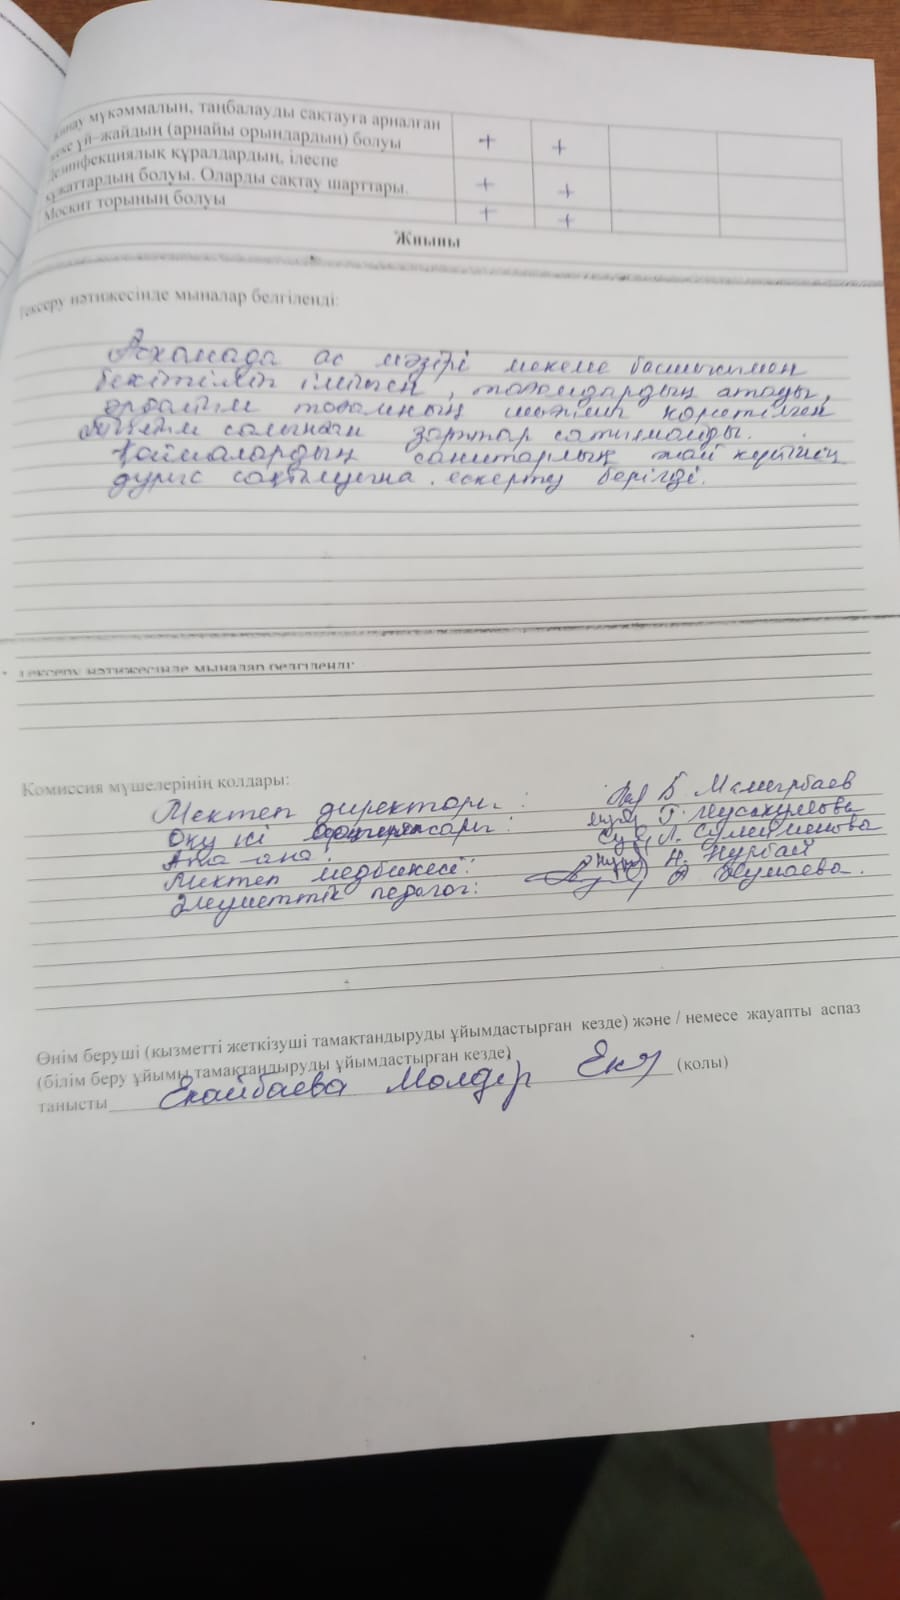 жинау мүкәммалын, таңбалауды сақтауға арналған
жеке үй–жайдың (арнайы орындардың) болуы + +
Дезинфекциялық құралдардың, ілеспе
құжаттардың болуы. Оларды сақтау шарттары. + +
Москит торының болуы + +
Жиыны
Тексеру нәтижесінде мыналар белгіленді:
Асханада ас мәзірі мекеме басшысымен
бекітіліп ілінген, тағамдардың атауы,
әрбір тағамның шығымы көрсетілген
тыйым салынған заттар сатылмайды.
Қоймалардың санитарлық жай күйінің
дұрыс сақталуына ескерту берілді.
Тексеру нәтижесінде мыналар белгіленді:
Комиссия мүшелерінің қолдары:
Мектеп директоры: Б
Оқу ісі : Г. Мусакулова
Ата-ана: Л. Сулейменова
Мектеп медбикесі: Н. Нурбай
Әлеуметтік педагог: Жумаева.
Өнім беруші (қызметті жеткізуші тамақтандыруды ұйымдастырған кезде) және / немесе жауапты аспаз
(білім беру ұйымы тамақтандыруды ұйымдастырған кезде)
танысты Молдір (қолы)